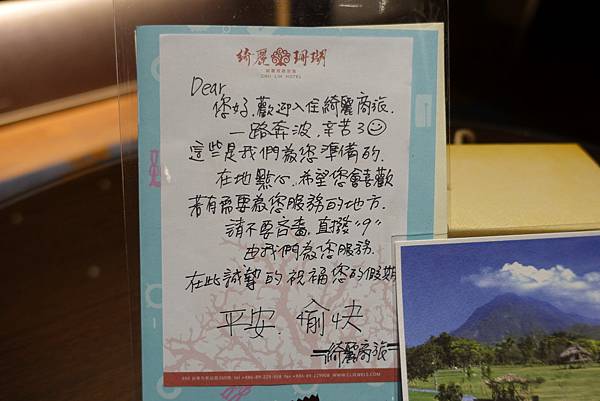 綺麗珊瑚
CHII LIH HOTEL
Dear
您好,歡迎入住綺麗商旅.
一路奔波.辛苦了
這些是我們為您準備的.
在地點心.希望您會喜歡
若有需要為您服務的地方.
請不要吝嗇.直撥"9"
由我們為您服務.
在此誠摯的祝福您的假期
平安.愉快
綺麗商旅